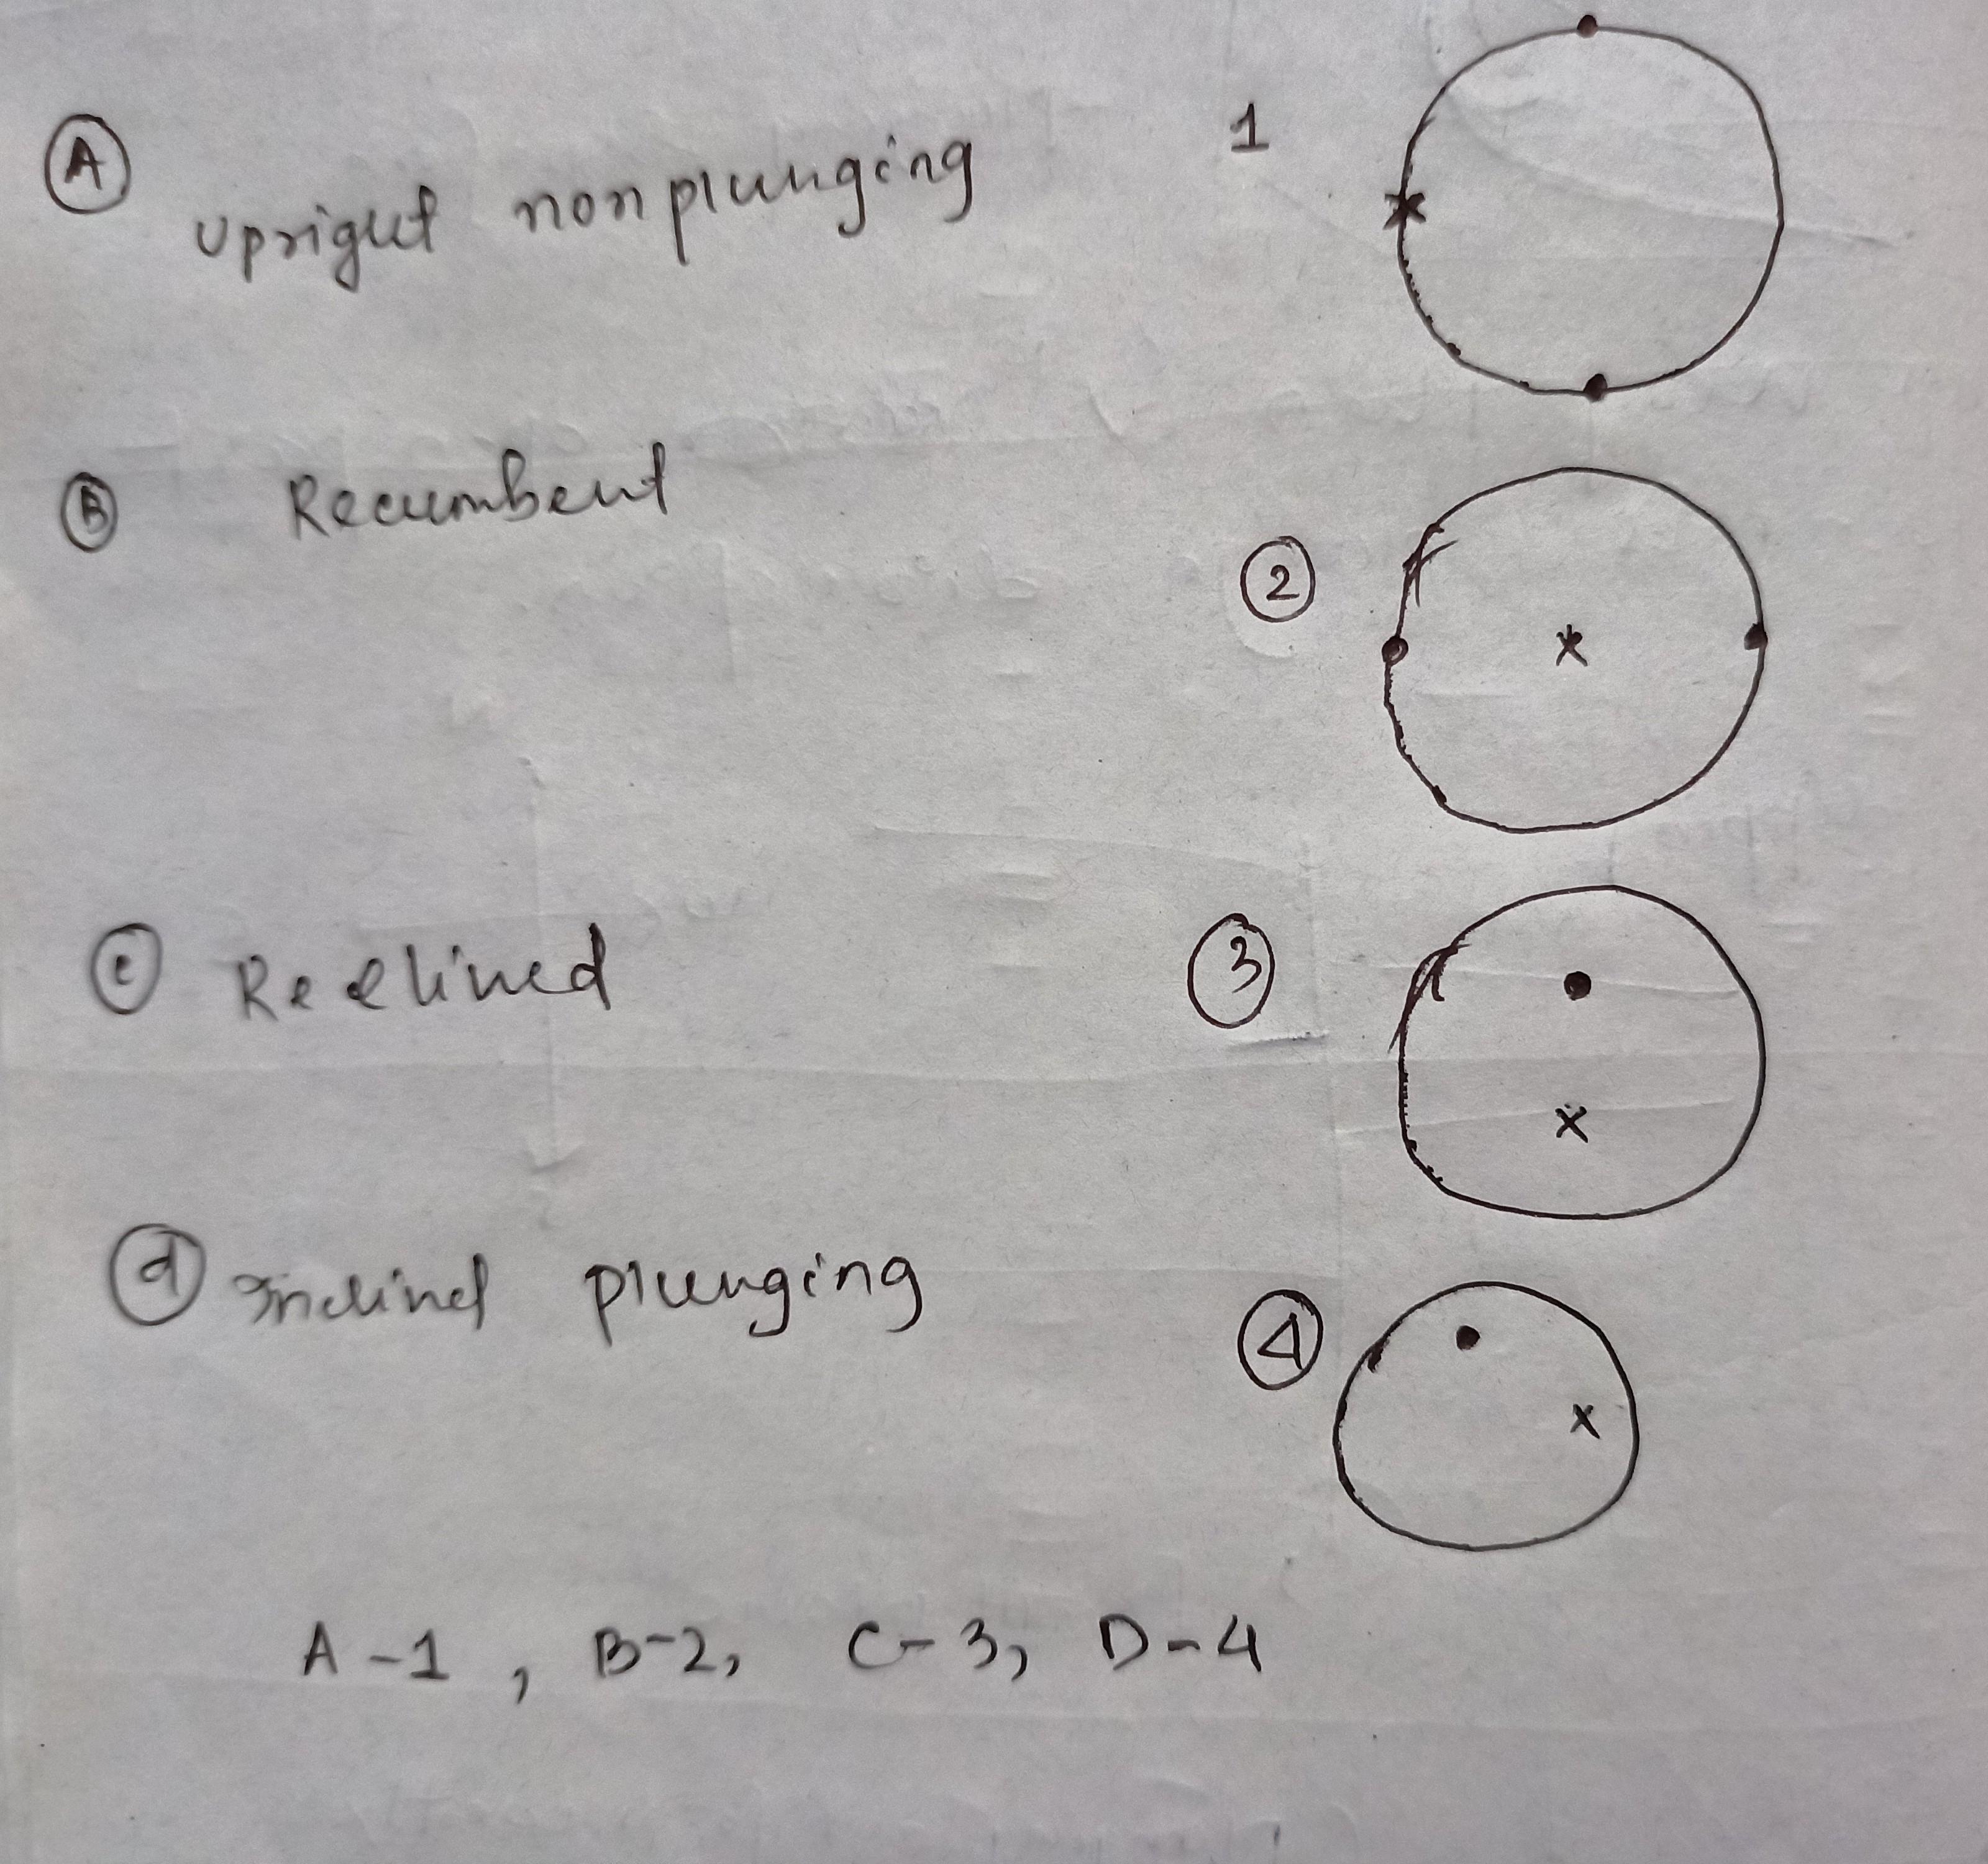 A upright nonplunging 1
B Recumbent
2
c Reclined 3
d Inclined plunging 4
A-1, B-2, C-3, D-4